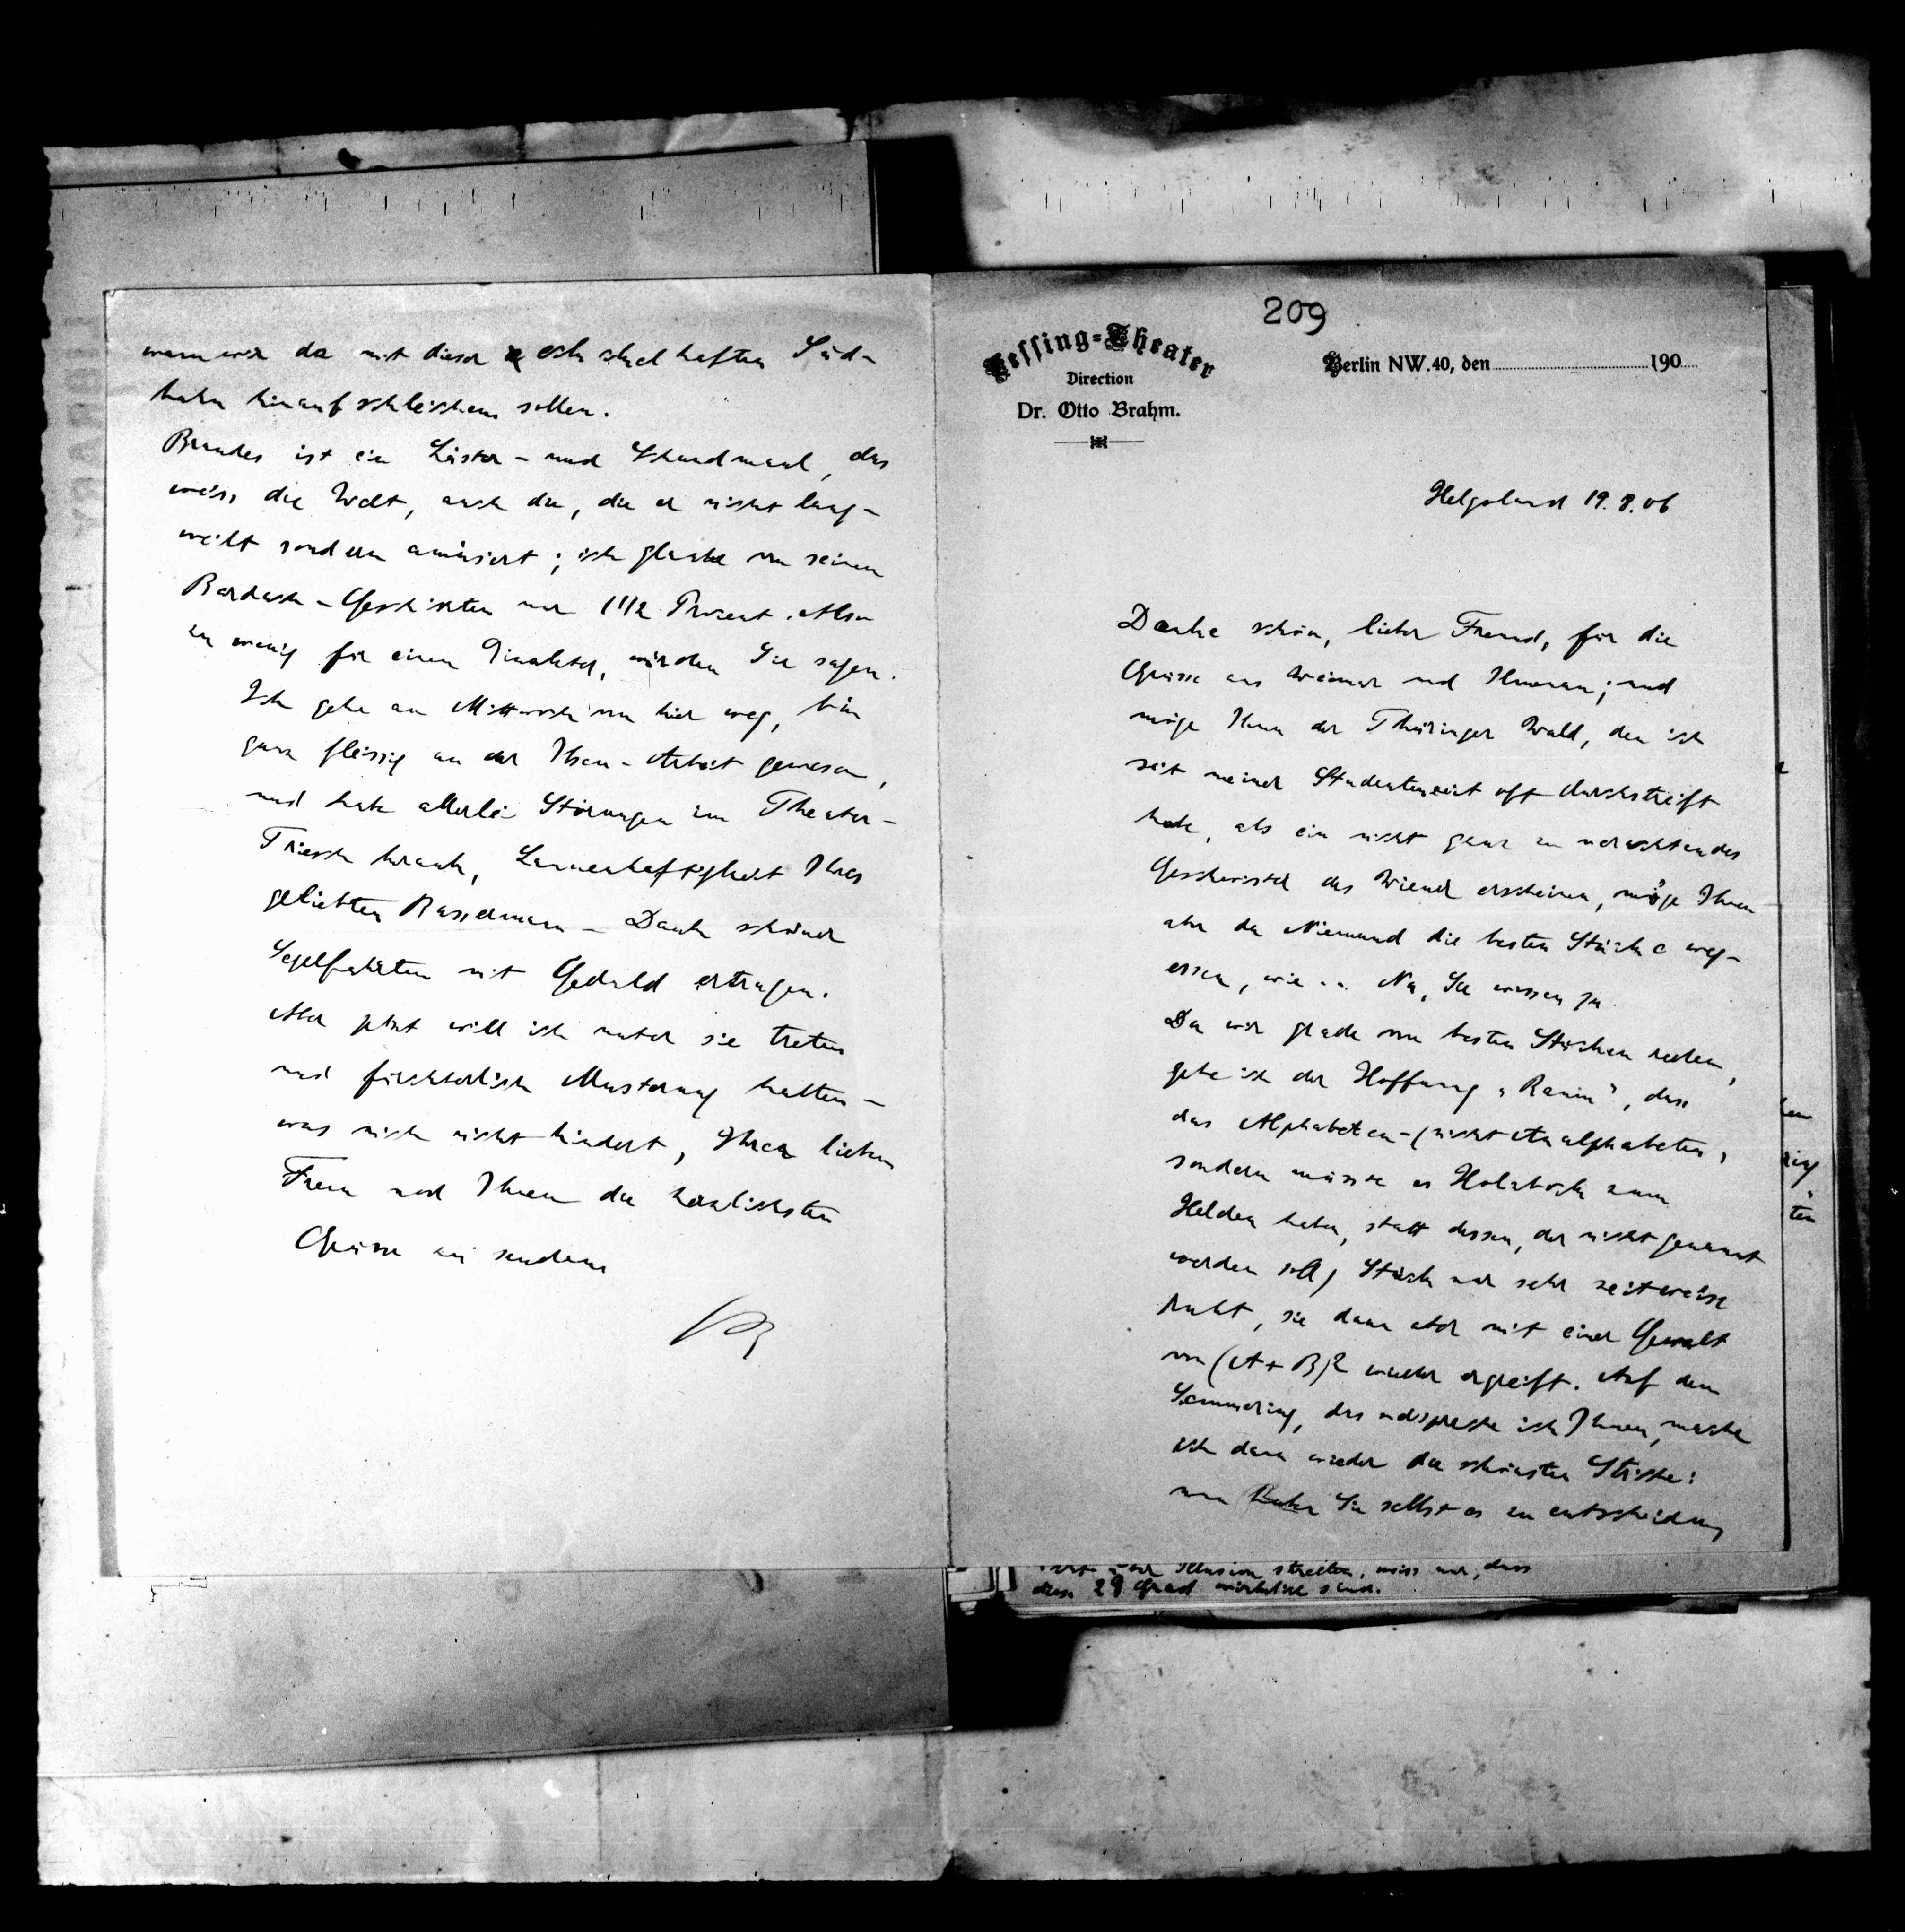 209
Lessing-Theater
Direction
Dr. Otto Brahm.
Berlin NW. 40, den 190
Helgoland 19.8.06
Danke schön, lieber Freund, für die
Grüsse aus Weimar und Ilmenau; und
möge Ihnen der Thüringer Wald, den ich
seit meiner Studentenzeit oft durchstreift
habe, als ein nicht ganz zu verachtendes
Geschwister des Wiener erscheinen, möge Ihnen
aber da Niemand die besten Stücke weg-
essen, wie .. Na, Sie wissen ja.
Da wir grade von besten Stücken reden,
gebe ich der Hoffnung „Raum“, dass
das Alphabeten-(nicht Analphabeten,
sondern müsste es Holzbock zum
Helden haben, statt dessen, der nicht genannt
werden soll) Stück nur sehr zeitweise
ruht, sie dann aber mit einer Gewalt
von (A+B)2 wieder ergreift. Auf dem
Semmering, das verspreche ich Ihnen, mache
ich dann wieder die schönsten Striche:
nun haben Sie selbst es zu entscheiden,
wann wir da mit dieser ekelhaften Süd-
bahn hinaufschleichen sollen.
Brandes ist ein Läster- und Schandmaul, das
weiss die Welt, auch die, die er nicht lang-
weilt sondern amüsiert; ich glaube von seinen
Bardach-Geschichten nur 1 1/2 Prozent. Also
zu wenig für einen Einakter, würden Sie sagen.
Ich gehe am Mittwoch von hier weg, bin
ganz fleissig an der Ibsen-Arbeit gewesen,
und habe allerlei Störungen im Theater-
Triesch krank, Launenhaftigkeit Ihres
geliebten Bassermann - Dank schöner
Segelfahrten mit Geduld ertragen.
Aber jetzt will ich unter sie treten
und fürchterlich Musterung halten-
was mich nicht hindert, Ihrer lieben
Frau und Ihnen die herzlichsten
Grüsse zu senden
Illusion streiten, weiss nur, dass
diese 29 Grad wirklich sind.